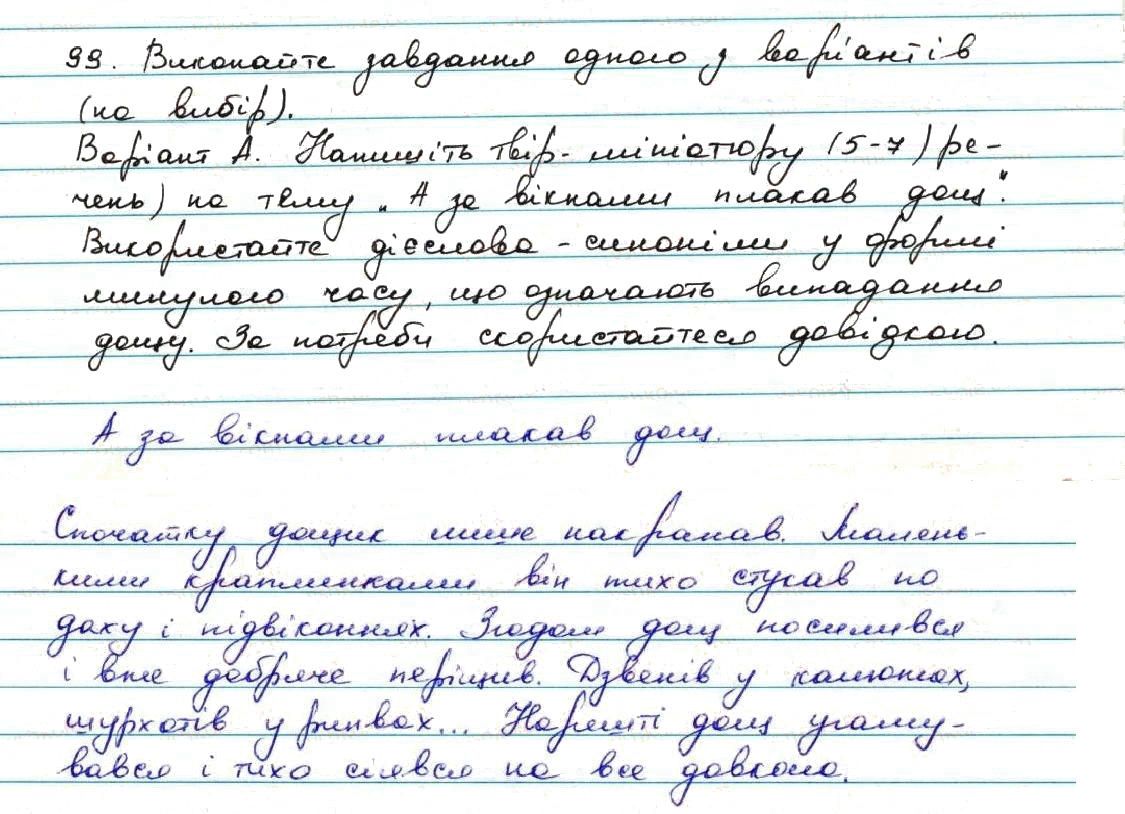 99. Виконайте завдання одного з варіантів
(на вибір).
Варіант А. Напишіть твір-мініатюру (5-7) ре-
чень) на тему „А за вікнами плакав дощ".
Використайте дієслова-синоніми у формі
минулого часу, що означають випадання
дощу. За потреби скористайтеся довідкою.
А за вікнами плакав дощ.
Спочатку дощик лише накрапав. Малень-
кими краплинками він тихо стукав по
даху і підвіконнях. Згодом дощ посилився
і вже добряче періщив. Дзвенів у калюжах,
шурхотів у ринвах... Нарешті дощ угаму-
вався і тихо сіявся на все довкола.